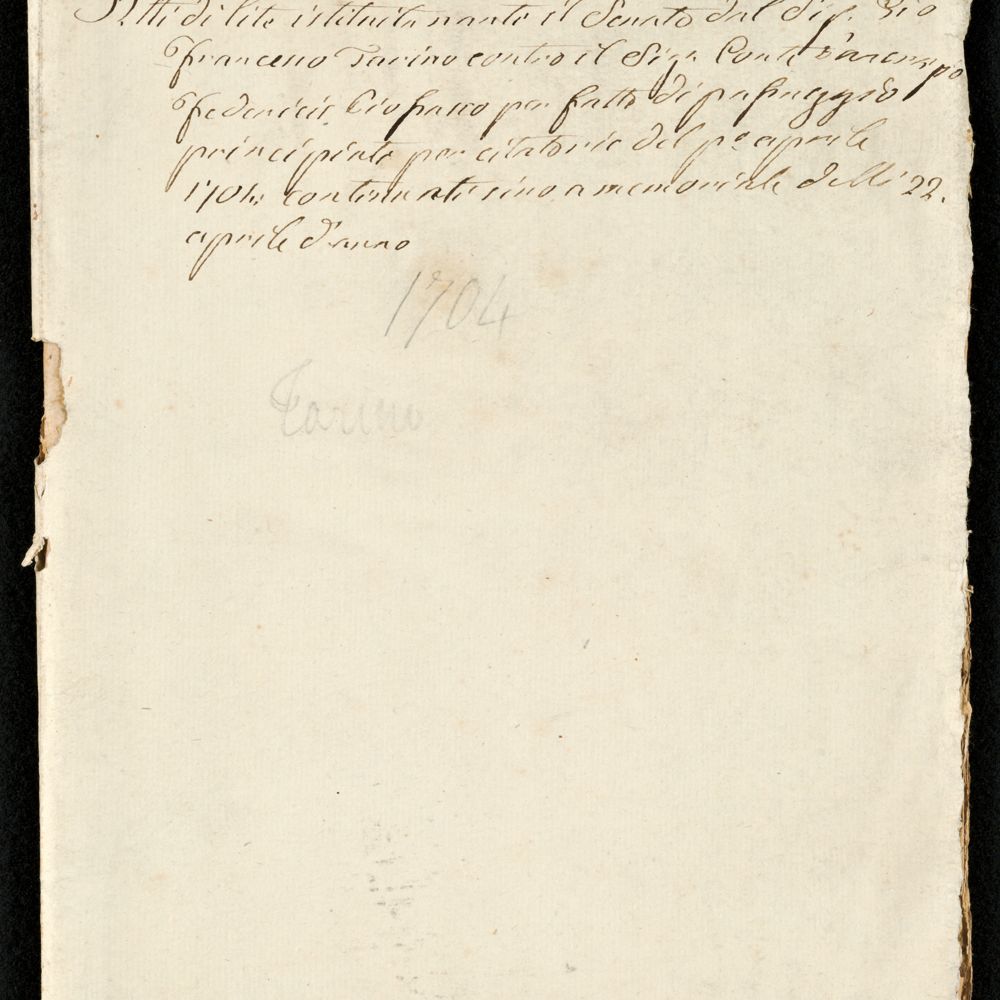 Atti di lite istituita nanti il Senato dal Sig. Gio
Francesco Tarino contro il Sigr. Conte
Federico per fatto di passaggio
principiate per citatorie del p.º aprile
1704: continuate sino a memoriale delli 22.
aprile d.º anno
1704
Tarino